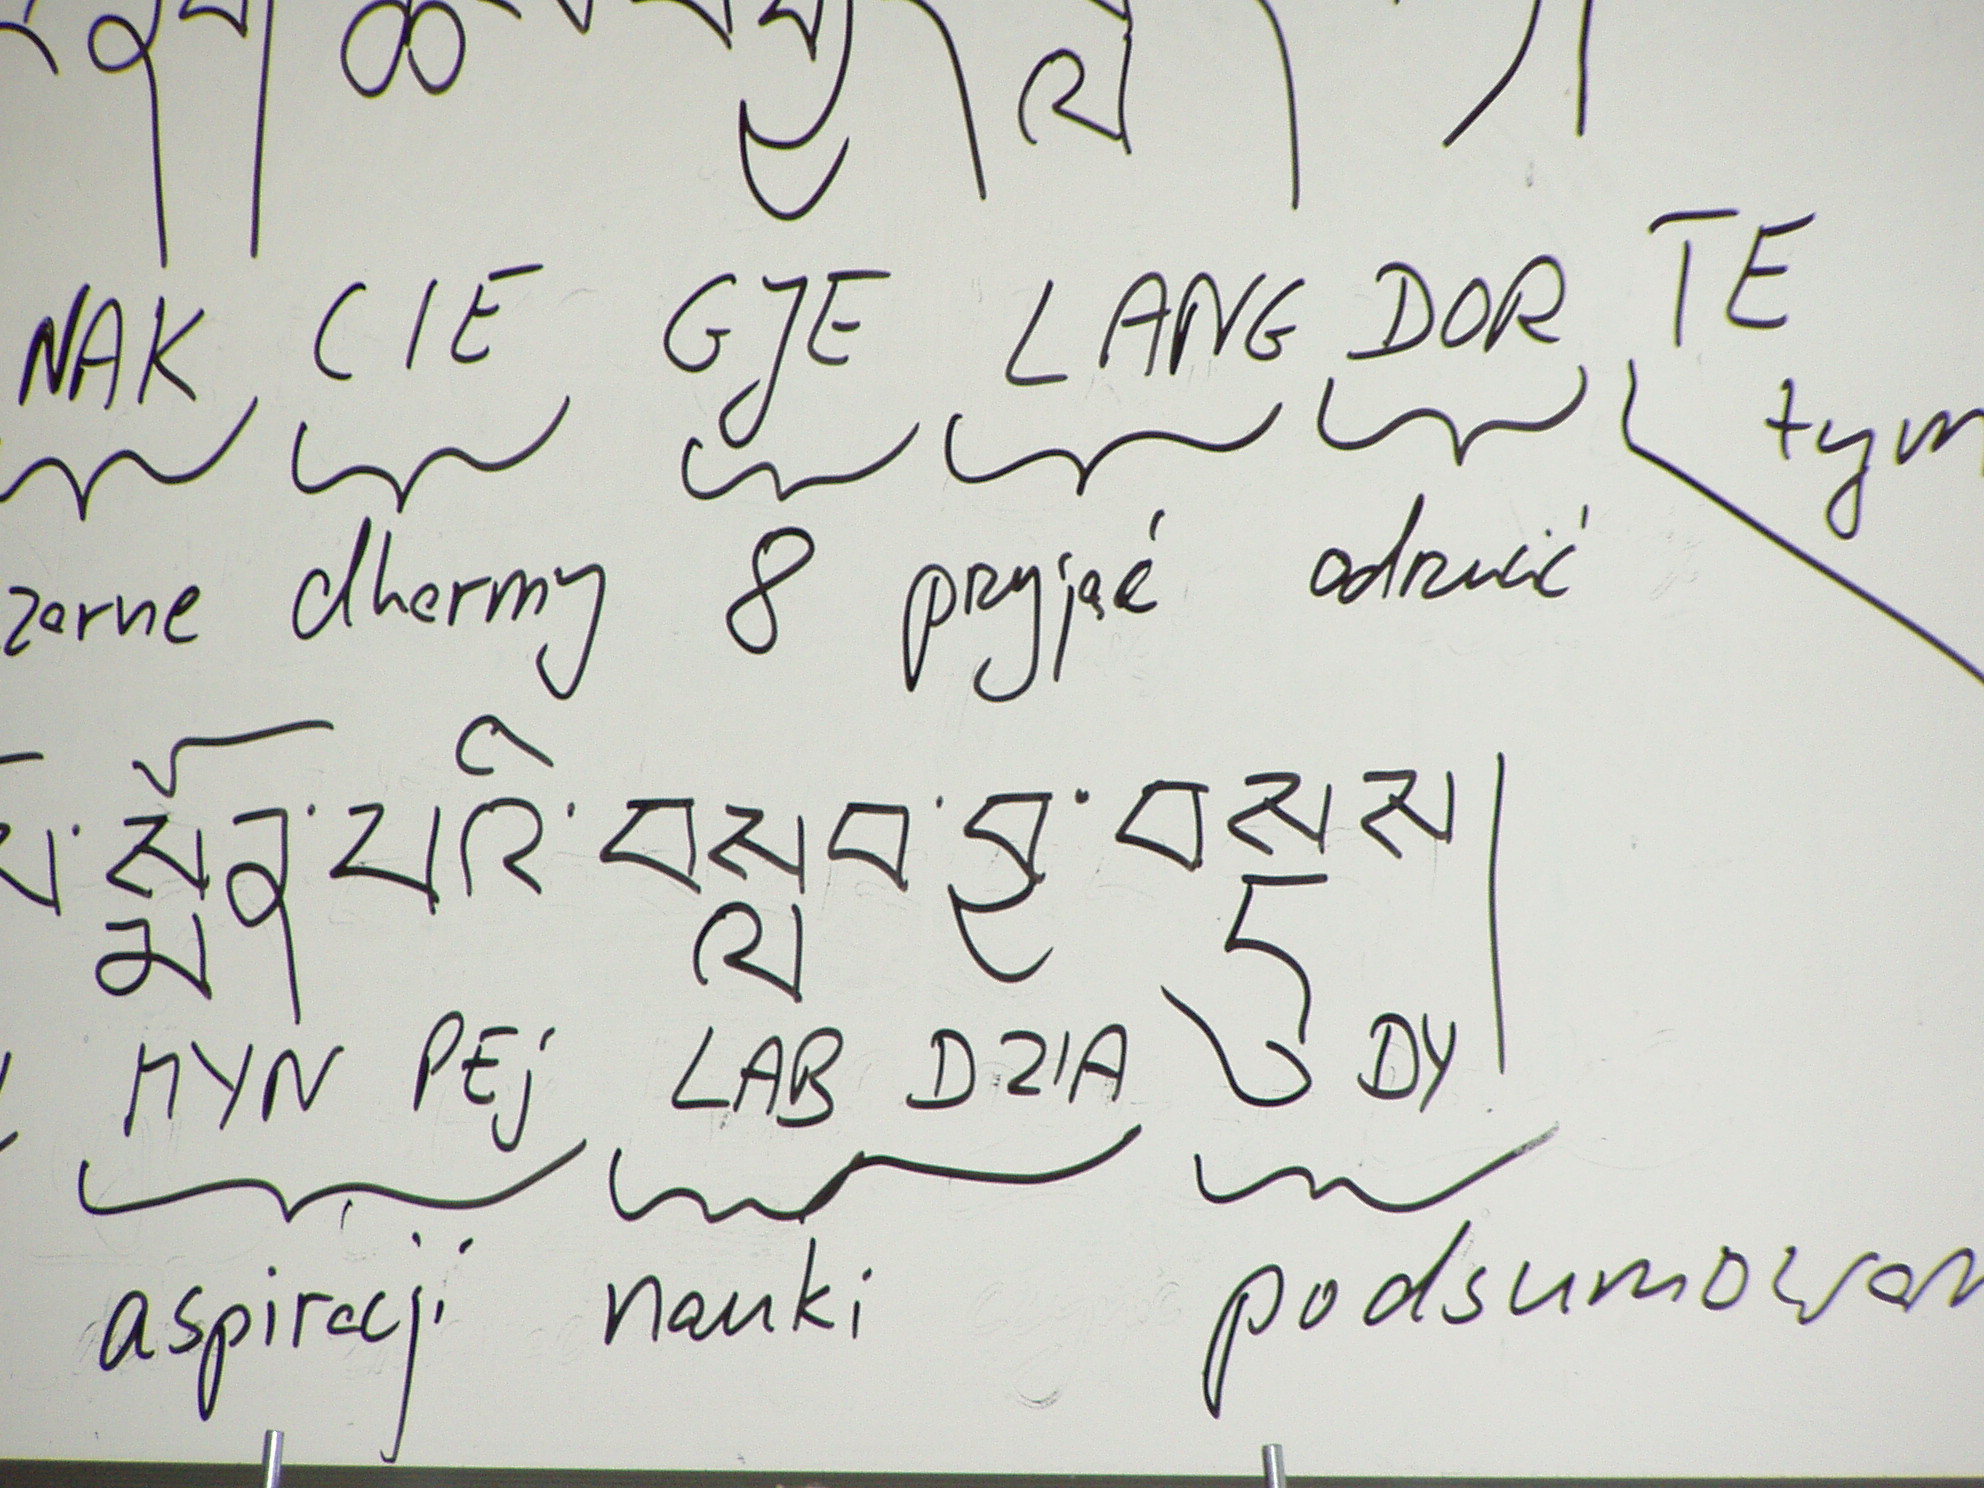 NAK CIE GJE LANG DOR TE
tym
zarne dharmy 8 przyjąć odrzucić
སྨོན་པའི་བསླབ་བྱ་བསྡུས།
MYN PEj LAB DZIA DY
aspiracji nauki podsumowan